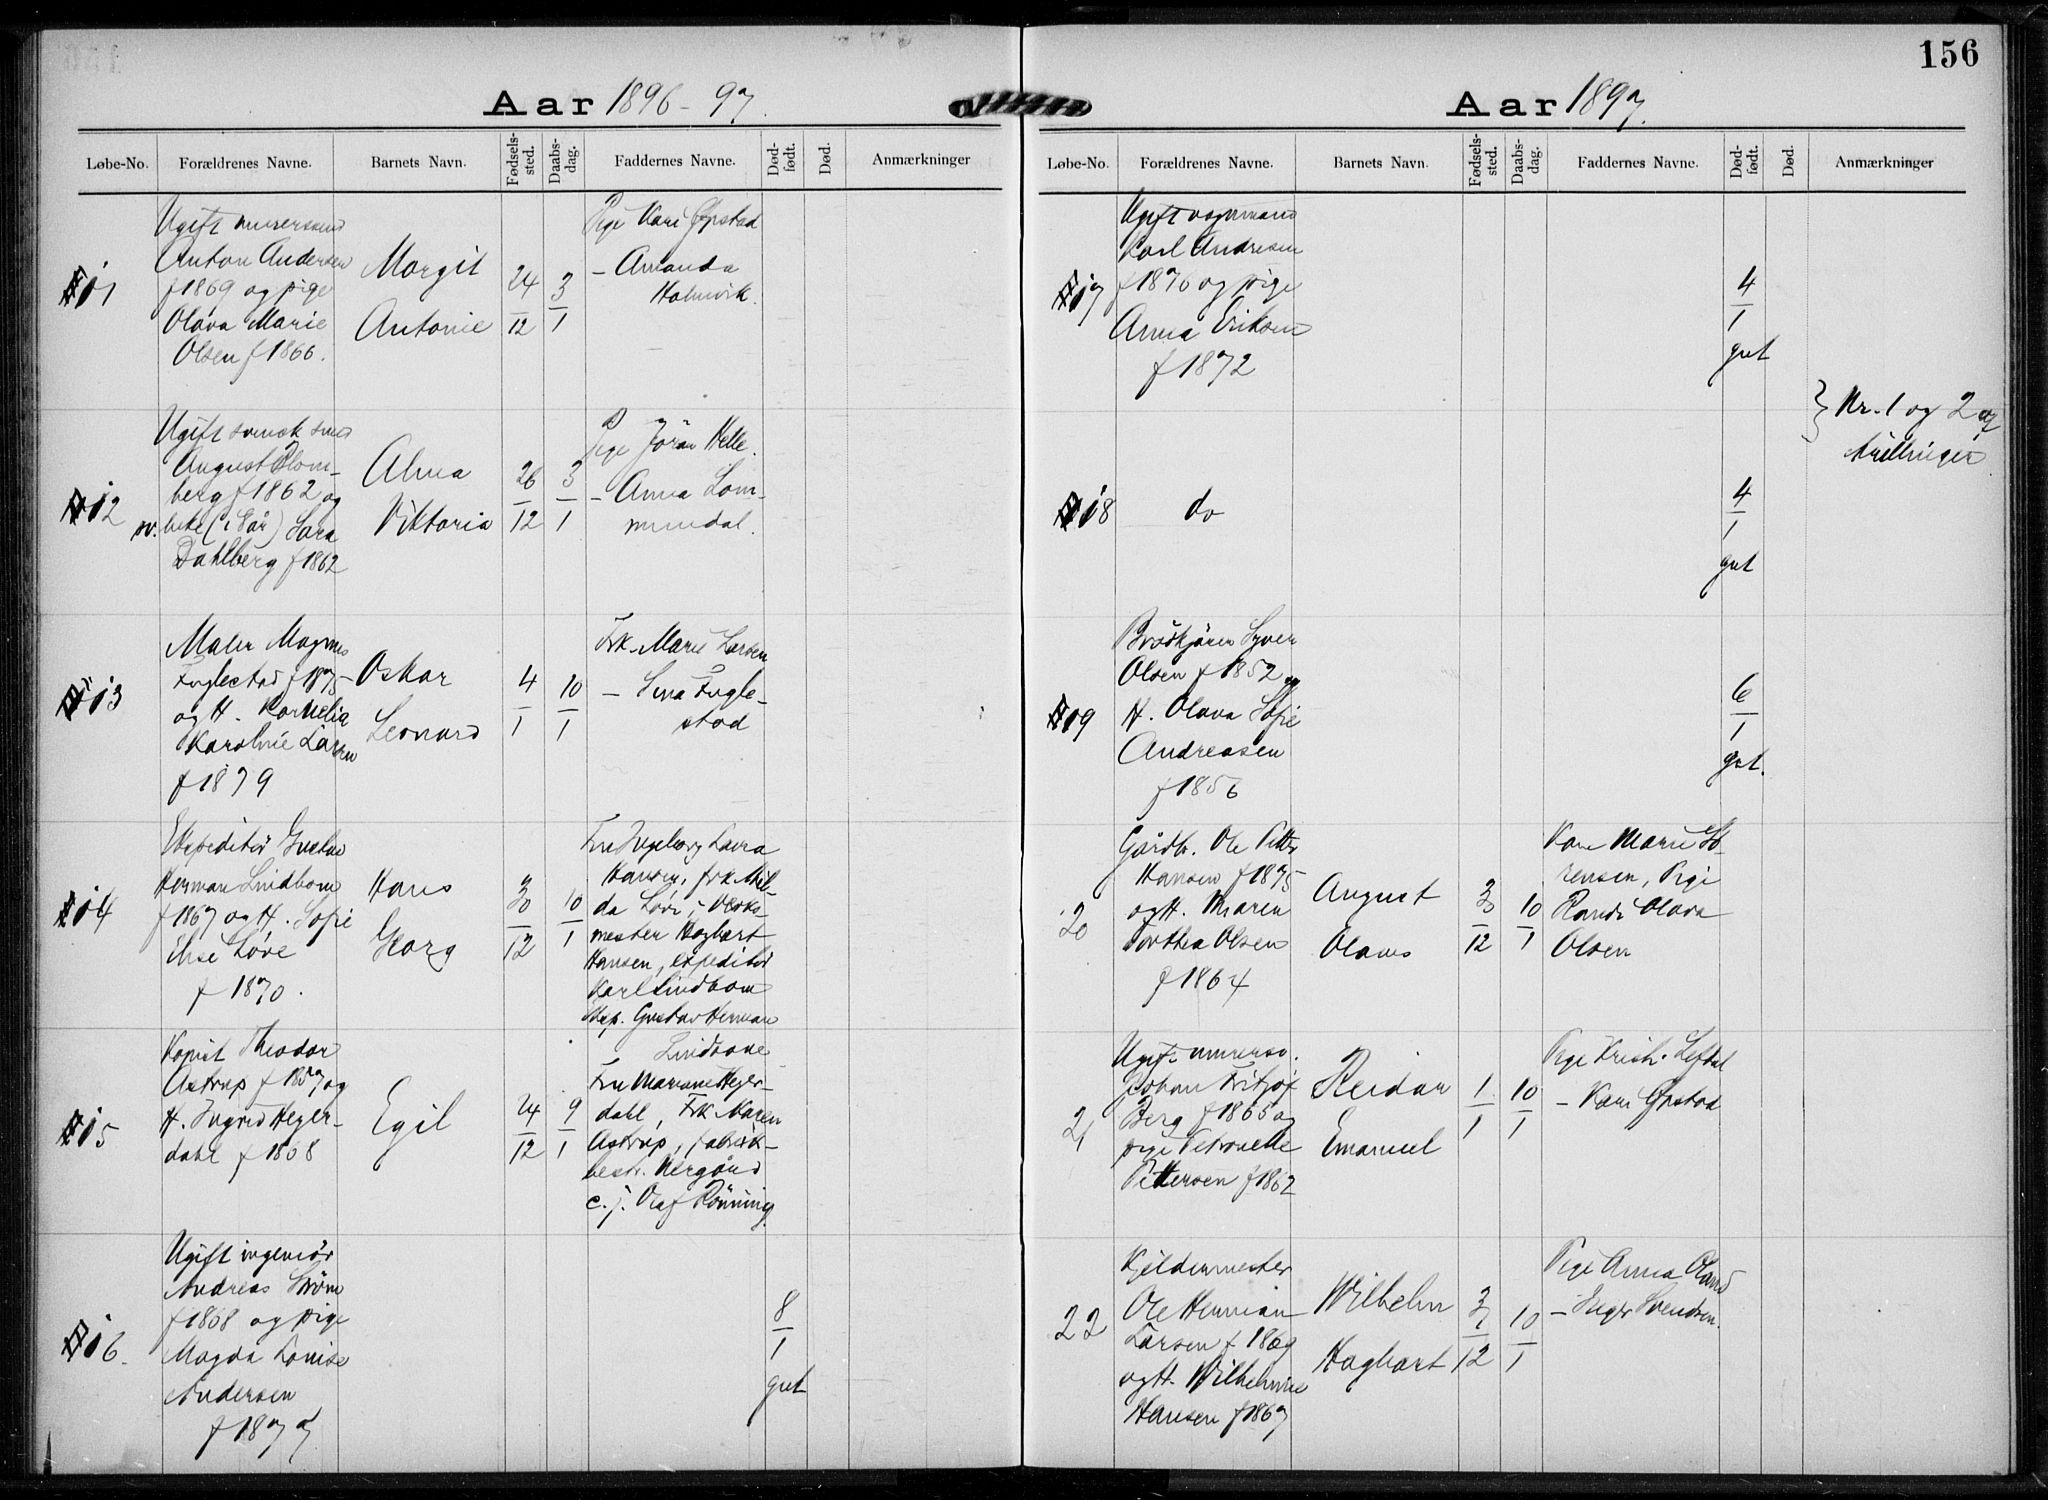 156
Aar 1896-97.
Løbe-No. Forældrenes Navne. Barnets Navn. Fødsels-sted. Daabs-dag. Faddernes Navne. Død-født. Død. Anmærkninger
11
Ugift murersvend
Anton Andersen
f 1869 og pige
Olava Marie
Olsen f 1866.
Margit
Antonie
24/12
3/1
Pige Kari Opstad
– Amanda
Holmvik.
12
Ugift svensk smed
August Blom-
berg f 1862 og
Sara
Dahlberg f 1862
Alma
Viktoria
26/12
3/1
Pige Jöran Helle.
– Anna Lom-
mendal.
13
Maler Magnus
Fuglestad f 1875
og H. Kornelia
Karoline Larsen
f 1879
Oskar
Leonard
4/1
10/1
Frk. Marie Larsen
– Sina Fugle-
stad
14
Ekspeditör Gustav
Herman Lindbom
f 1867 og H. Sofie
Löve
f 1870.
Hans
Georg
30/12
10/1
Fru Ingeborg Laura
Hansen, frk. Mil-
da Löve, Verks-
mester Hagbart
Hansen, expeditör
Karl Lindbom
Exp. Gustav Herman
Lindbome
15
Kopist Theodor
Astrup f 1857 og
H. Ingrid Heyer-
dahl f 1868
Egil
24/12
9/1
Fru Mariane Heyer-
dahl, Frk. Karen
Astrup, fabrik-
bestr. Nergård
c. j. Olaf Rönning
16.
Ugift ingeniör
Andreas Ström
f 1868 og pige
Magda Louise
Andersen
f 1877
8/1
gut
Aar 1897.
Løbe-No. Forældrenes Navne. Barnets Navn. Fødsels-sted. Daabs-dag. Faddernes Navne. Død-født. Død. Anmærkninger
17
Ugift vognmand
Karl Andresen
f 1876 og pige
Anna Eriksen
f 1872
4/1
gut
} Nr. 1 og 2 af
trillinger
18
do
4/1
gut
19
Brödkjörer Syver
Olsen f 1852 og
H. Olava Sofie
Andreasen
f 1856
6/1
gut.
20
Gårdbr. Ole Petter
Hansen f 1875
og H. Maren
Dorthea Olsen
f 1864
August
Olaves
30/12
10/1
Kone Marie Sö-
rensen, Pige
Randi Olava
Olsen
21
Ugift murersv.
Johan Fritjof
Berg f 1865 og
pige Petronelle
Pettersen f 1862
Reidar
Emanuel
1/1
10/1
Pige Krist. Leftdal
– Kari Opstad
22
Kjeldermester
Ole Herman
Larsen f 1869
og H. Wilhelmine
Hansen f 1867
Wilhelm
Hagbart
10/1
Pige Anna Oland
– Inger Svendsen.